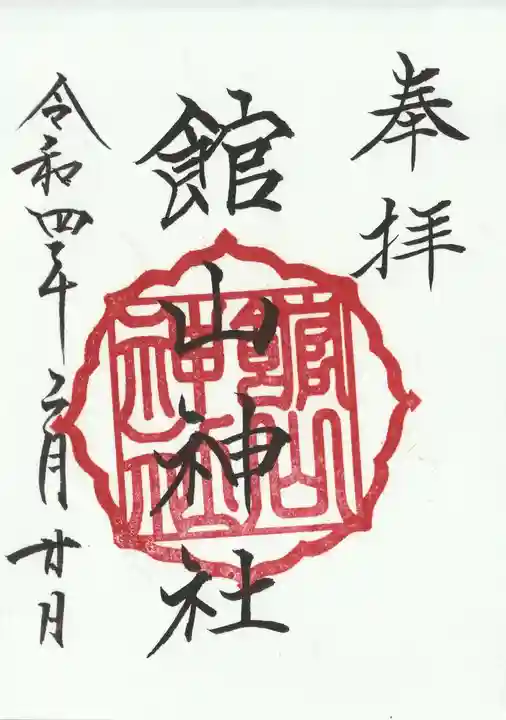 奉拝
館山神社
令和四年二月廿日
館山神社